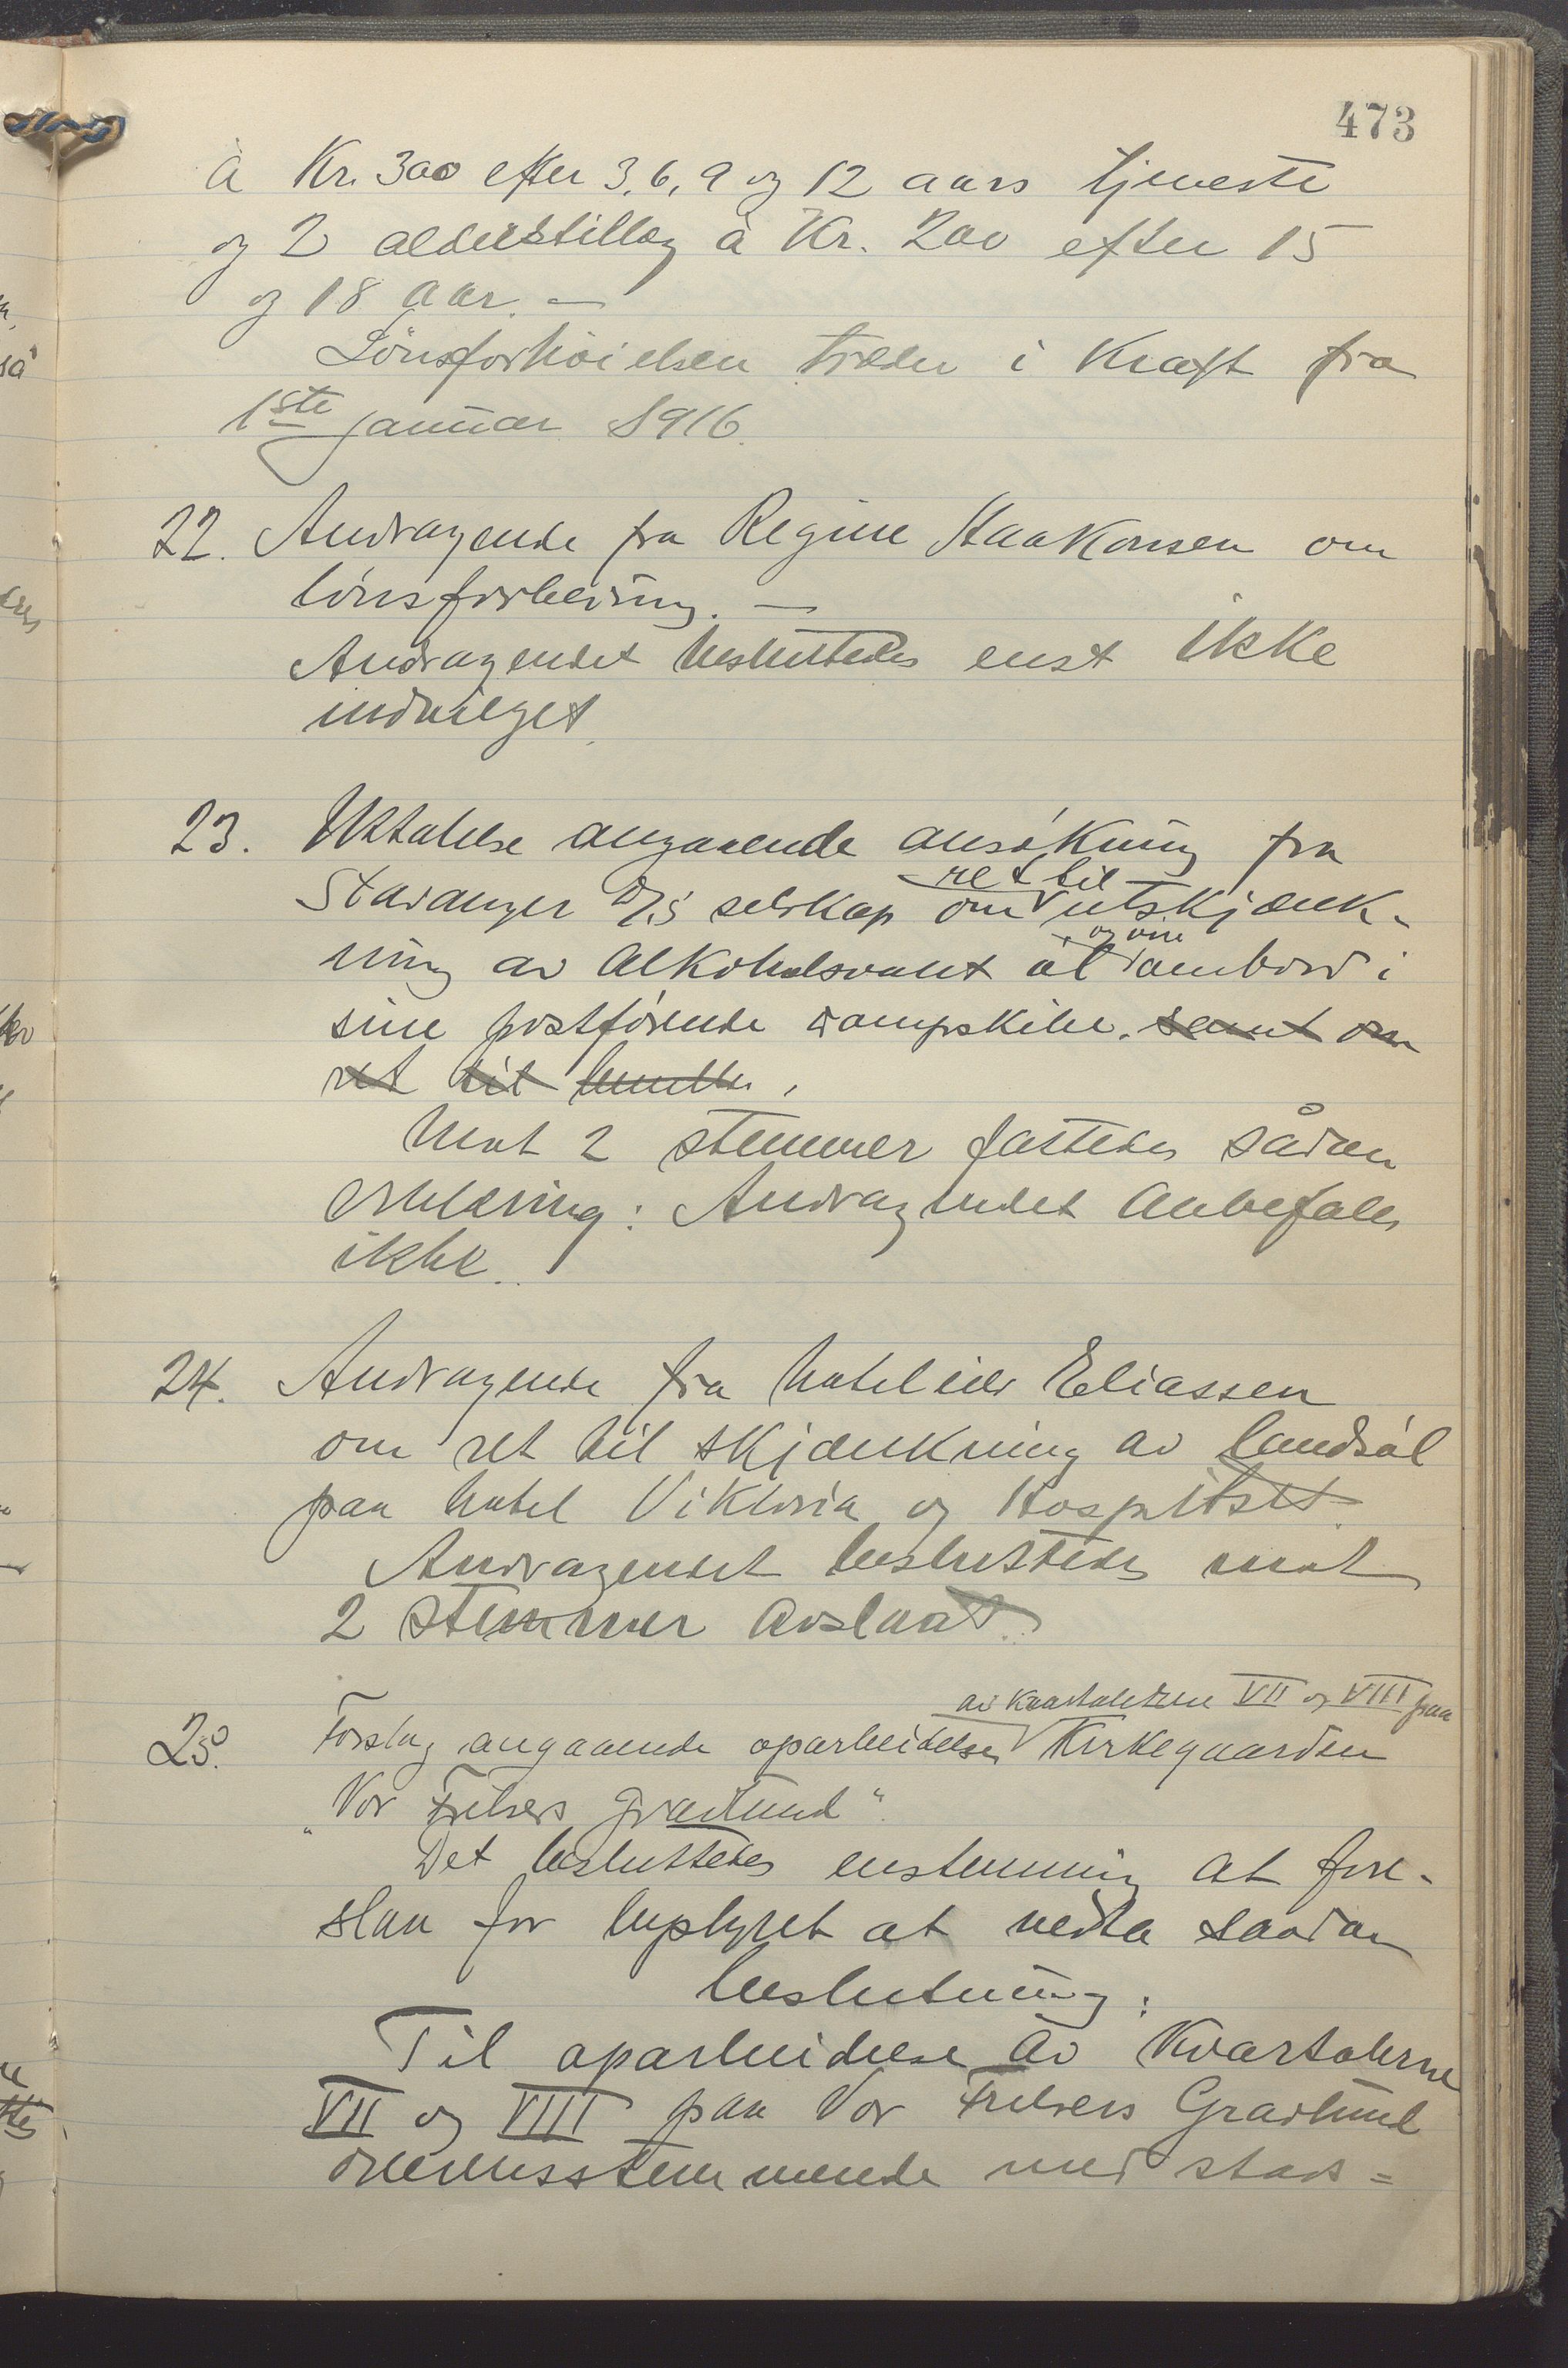 473
à Kr. 300 efter 3, 6, 9 og 12 aars tjeneste
og 2 alderstillæg à Kr. 200 efter 15
og 18 aar. —
Lönsforhöielsen træder i kraft fra
1ste januar 1916.
22. Andragende fra Regine Haakonsen om
lönsforbedring. —
Andragendet besluttedes enst ikke
indvilget.
23. Uttalelse angaaende ansökning fra
ret til
Stavanger D/S selskap om utskjænk-
og vin
ning av alkoholsvakt öl ombord i
sine postförende dampskibe. samt om
ret til
Mot 2 stemmer fattedes sådan
erklæring: Andragendet anbefales
ikke.
24. Andragende fra hoteleier Eliassen
om ret til skjænkning av landsöl
paa hotel Viktoria og Hospitset.
Andragendet besluttedes mot
2 stemmer avslaat.
av kvartalerne VII og VIII paa
25. Forslag angaaende oparbeidelse Kirkegaarden
"Vor Frelsers gravlund".
Det besluttedes enstemmig at fore-
slaa for bystyret at vedta saadan
beslutning:
Til oparbeidelse av kvartalerne
VII og VIII paa Vor Frelsers Gravlund
overensstemmende med stads=